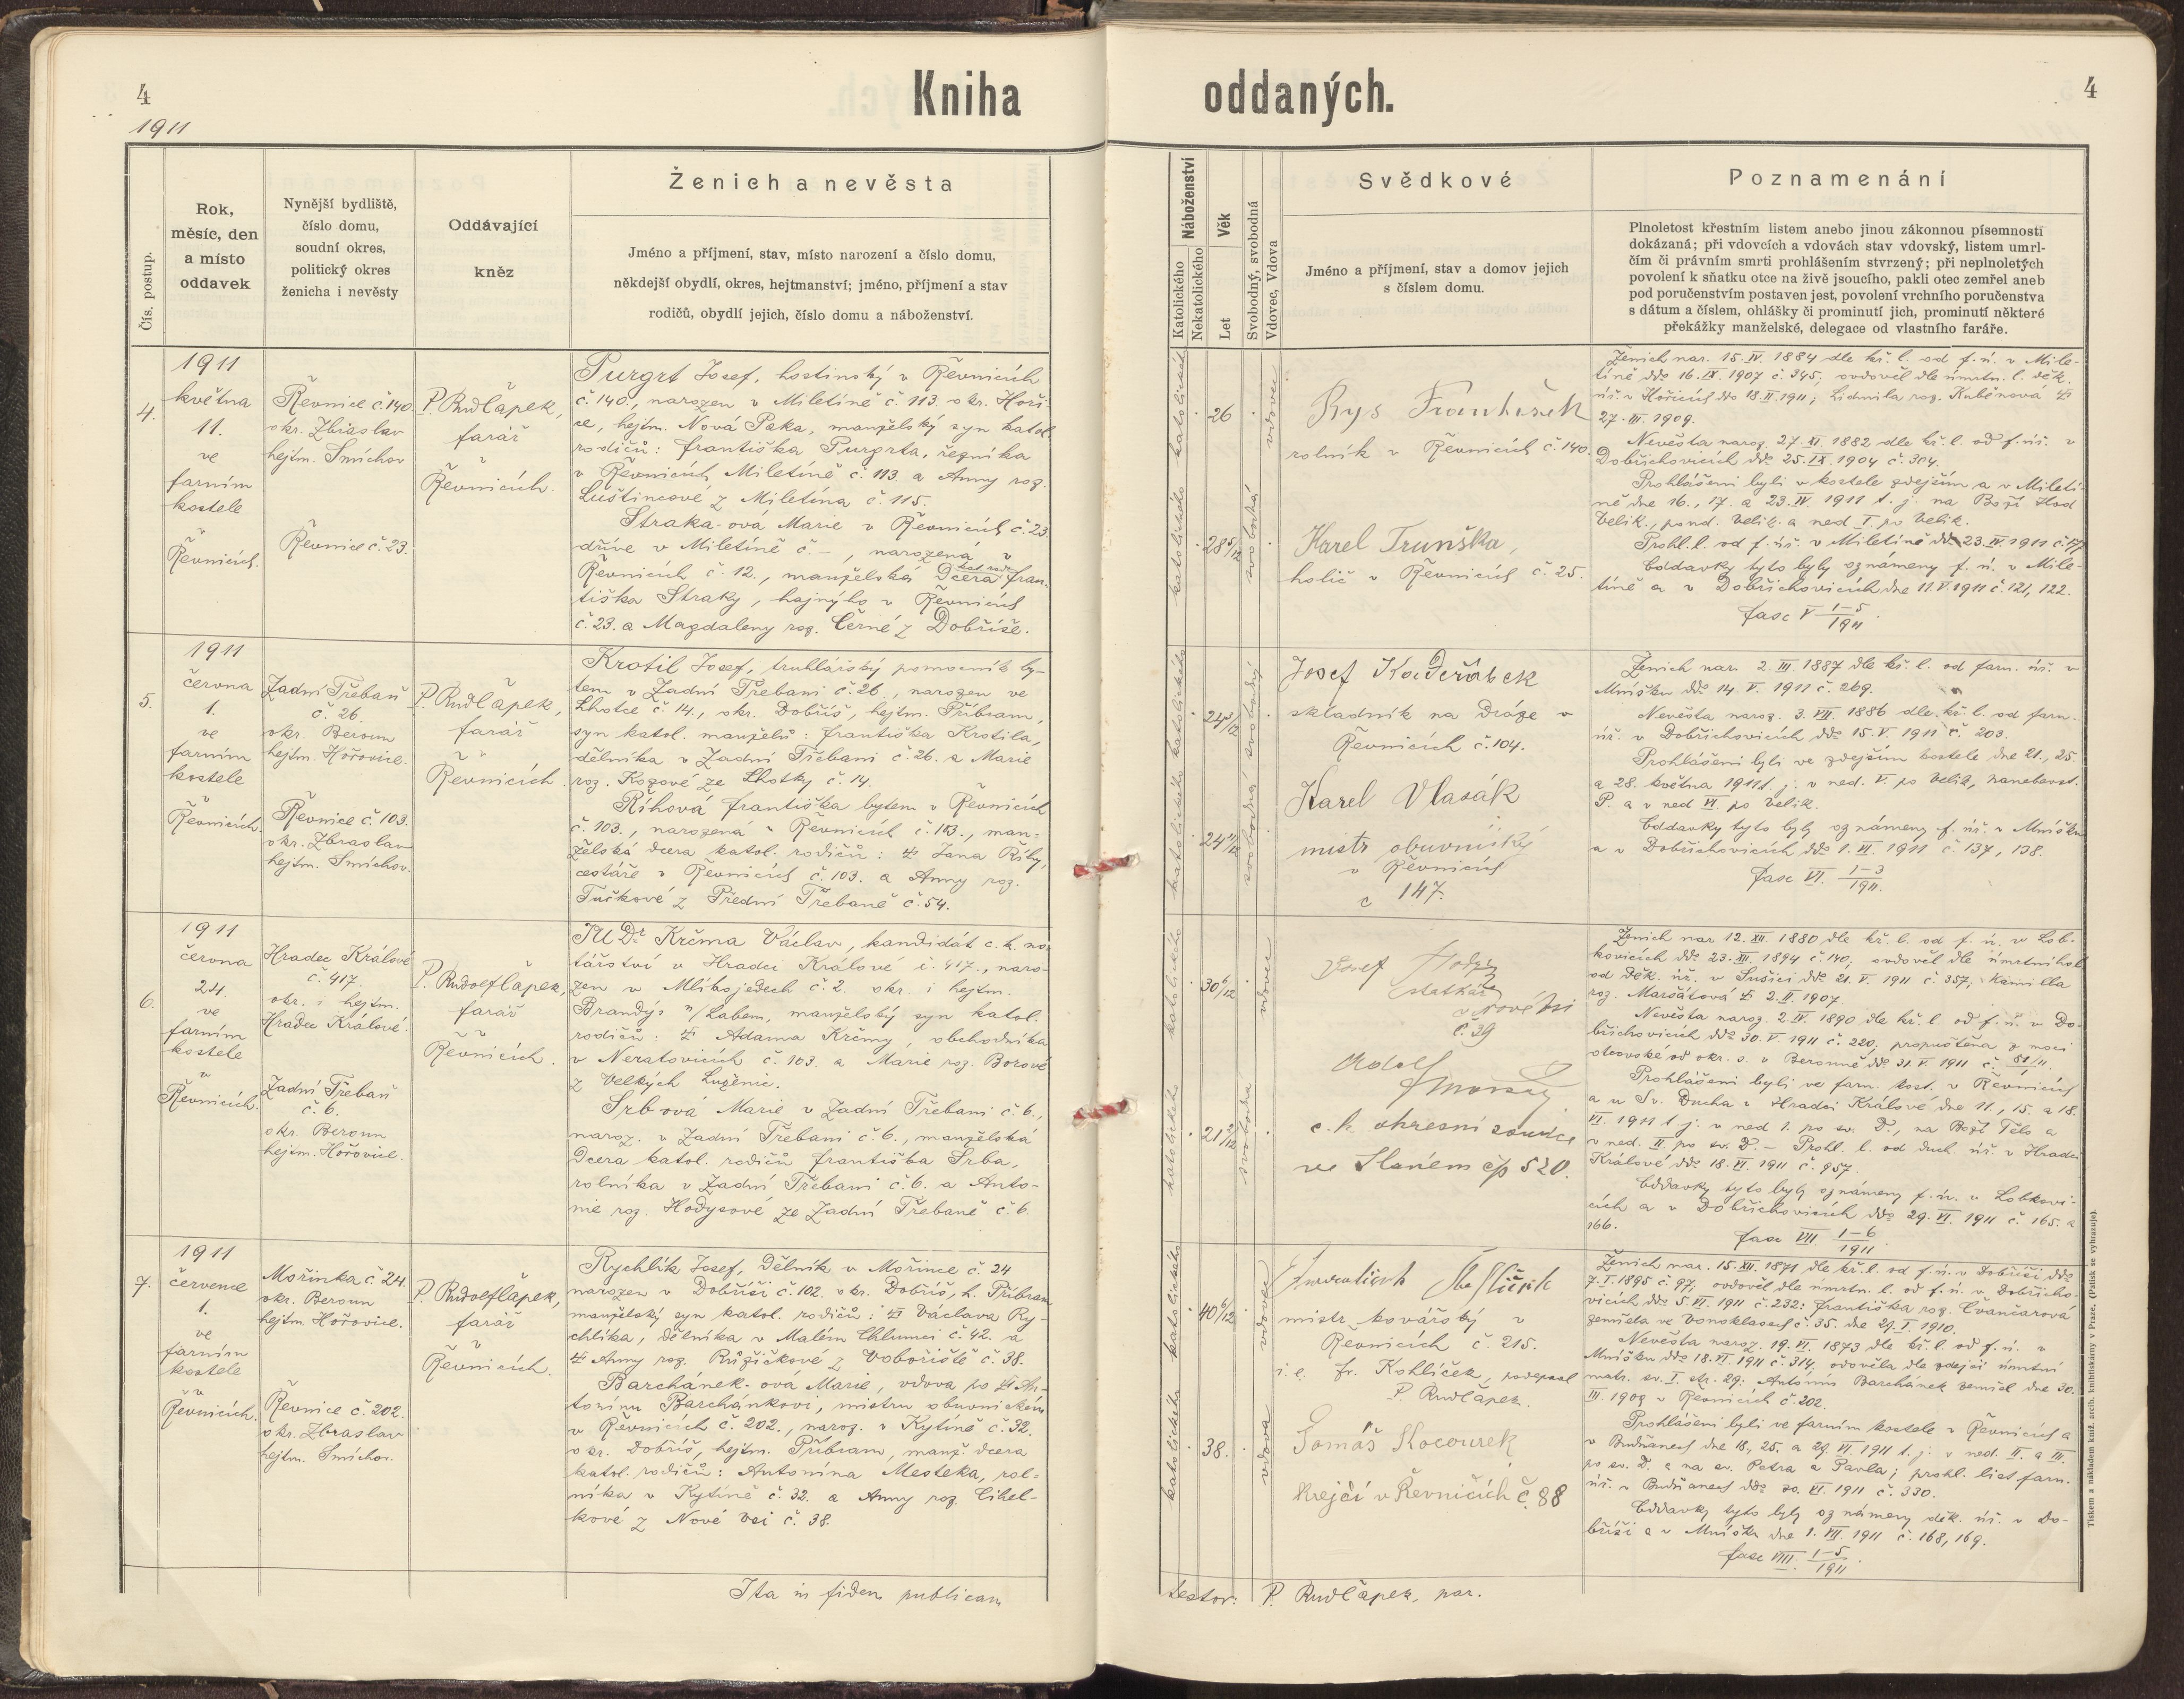 4
Kniha
1911
Čís. postup.
Rok,
měsíc, den
a místo
oddavek
Nynější bydliště,
číslo domu,
soudní okres,
politický okres
ženicha i nevěsty
Oddávající
kněz
Ženich a nevěsta
Jméno a příjmení, stav, místo narození a číslo domu,
někdejší obydlí, okres, hejtmanství; jméno, příjmení a stav
rodičů, obydlí jejich, číslo domu a náboženství.
4.
1911
května
11.
ve
farním
kostele
v
Řevnicích.
Řevnice č. 140.
okr. Zbraslav
hejtm. Smíchov
Řevnice č. 23.
P. Rud Čapek,
farář
v
Řevnicích.
Purgrt Josef, hostinský v Řevnicích
č. 140., narozen v Miletíně č. 113. okr. Hoři-
ce, hejtm. Nová Paka, manželský syn katol.
rodičů: Františka Purgrta, řezníka
v Řevnicích, Miletíně č. 113. a Anny roz.
Luštincové z Miletína č. 115.
Straka-ová Marie v Řevnicích č. 23.
dříve v Miletíně č. –, narozená v
Řevnicích č. 12., manželská dcera kat. rod. Fran-
tiška Straky, hajného v Řevnicích
č. 23. a Magdaleny roz. Černé z Dobříše.
5.
1911
června
1.
ve
farním
kostele
v
Řevnicích.
Zadní Třebaň
č. 26.
okr. Beroun
hejtm. Hořovice.
Řevnice č. 103.
okr. Zbraslav
hejtm. Smíchov.
P. Rud Čapek,
farář
v
Řevnicích.
Krotil Josef, truhlářský pomocník by-
tem v Zadní Třebani č. 26., narozen ve
Lhotce č. 14., okr. Dobříš, hejtm. Příbram,
syn katol. manželů: Františka Krotila,
dělníka v Zadní Třebani č. 26. a Marie
roz. Kozové ze Lhotky č. 14.
Říhová Františka bytem v Řevnicích
č. 103., narozená v Řevnicích č. 103., man-
želská dcera katol. rodičů: Jana Říhy,
cestáře v Řevnicích č. 103. a Anny roz.
Tučkové z Přední Třebaně č. 54.
6.
1911
června
24.
ve
farním
kostele
v
Řevnicích.
Hradec Králové
č. 417.
okr. i hejtm.
Hradec Králové.
Zadní Třebaň
č. 6.
okr. Beroun
hejtm. Hořovice.
P. Rudolf Čapek,
farář
v
Řevnicích.
JUDr Krčma Václav, kandidát c. k. no-
tářství v Hradci Králové č. 417., naro-
zen v Mlíkojedech č. 2. okr. i hejtm.
Brandýs n/Labem, manželský syn katol.
rodičů: Adama Krčmy, obchodníka
v Neratovicích č. 103. a Marie roz. Borové
z Velkých Luženic.
Srb-ová Marie v Zadní Třebani č. 6.,
naroz. v Zadní Třebani č. 6., manželská
dcera katol. rodičů Františka Srba,
rolníka v Zadní Třebani č. 6. a Anto-
nie roz. Hodysové ze Zadní Třebaně č. 6.
7.
1911
července
1.
ve
farním
kostele
v
Řevnicích.
Mořinka č. 24.
okr. Beroun
hejtm. Hořovice.
Řevnice č. 202.
okr. Zbraslav
hejtm. Smíchov.
P. Rudolf Čapek,
farář
v
Řevnicích.
Rychlík Josef, dělník v Mořince č. 24
narozen v Dobříši č. 102. okr. Dobříš, h. Příbram
manželský syn katol. rodičů: Václava Ry-
chlíka, dělníka v Malém Chlumci č. 42. a
Anny roz. Růžičkové z Voboříště č. 38.
Barchánek-ová Marie, vdova po An-
tonínu Barchánkovi, mistru obuvnickém
v Řevnicích č. 202., naroz. v Kytíně č. 32.
okr. Dobříš, hejtm. Příbram, manž. dcera
katol. rodičů: Antonína Mesteka, rol-
níka v Kytíně č. 32. a Anny roz. Cihel-
kové z Nové Vsi č. 38.
Ita in fidem publicam
oddaných.
4
Náboženství
Katolického
Nekatolického
Věk
Let
Svobodný, svobodná
Vdovec, Vdova
Svědkové
Jméno a příjmení, stav a domov jejich
s číslem domu.
Poznamenání
Plnoletost křestním listem anebo jinou zákonnou písemností
dokázaná; při vdovcích a vdovách stav vdovský, listem umrl-
čím či právním smrti prohlášením stvrzený; při neplnoletých
povolení k sňatku otce na živě jsoucího, pakli otec zemřel aneb
pod poručenstvím postaven jest, povolení vrchního poručenstva
s dátum a číslem, ohlášky či prominutí jich, prominutí některé
překážky manželské, delegace od vlastního faráře.
katolického
26
vdovec
katolického
28 5/12
svobodná
Rys František
rolník v Řevnicích č. 140.
Karel Trunška,
holič v Řevnicích č. 25.
Ženich nar. 15. IV. 1884 dle kř. l. od f. ú. v Mile-
tíně ddo 16. IX. 1907 č. 345; ovdověl dle úmrtn. l. děk.
úř. v Hořicích ddo 18. II. 1911; Lidmila roz. Kuběnová
27. III. 1909.
Nevěsta naroz. 27. XI. 1882 dle kř. l. od f. úř. v
Dobřichovicích ddo 25. IX. 1904 č. 304.
Prohlášeni byli v kostele zdejším a v Miletí-
ně dne 16., 17. a 23. IV. 1911 t. j. na Boží Hod
Velik., pond. Velik. a ned. I. po Velik.
Prohl. l. od f. úř. v Miletíně ddo 23. IV. 1911 č. 177
Oddavky tyto byly oznámeny f. ú. v Mile-
tíně a v Dobřichovicích dne 11. V. 1911 č. 121, 122.
Fasc V 1–5/1911.
katolického
24 3/12
svobodný
katolického
24 11/12
svobodná
Josef Kadeřábek
skladník na dráze v
Řevnicích č. 104.
Karel Vlasák
mistr obuvnický
v Řevnicích
č 147.
Ženich nar. 2. III. 1887 dle kř. l. od farn. úř. v
Mníšku ddo 14. V. 1911 č. 269.
Nevěsta naroz. 3. VII. 1886 dle kř. l. od farn.
úř. v Dobřichovicích ddo 15. V. 1911 č. 203.
Prohlášeni byli ve zdejším kostele dne 21., 25.
a 28. května 1911 t. j. v ned. V. po Velik, nanebevst.
P. a v ned VI. po Velik.
Oddavky tyto byly oznámeny f. úř. v Mníšku
a v Dobřichovicích ddo 1. VI. 1911 č. 137, 138.
Fasc VI. 1–3/1911.
katolického
30 6/12
vdovec
katolického
21 2/12
svobodná
Josef Hodys
statkář
v Nové Vsi
č. 39
Adolf
c. k. okresní soudce
ve Slaném čp 520.
Ženich nar 12. XII. 1880 dle kř. l. od f. ú. v Lob-
kovicích ddo 23. XII. 1894 č. 140; ovdověl dle úmrtního l.
od děk. úř. v Sušici ddo 21. V. 1911 č. 357; Kamilla
roz. Maršátová 2. II. 1907.
Nevěsta naroz. 2. IV. 1890 dle kř. l. od f. ú. v Do-
břichovicích ddo 30. V. 1911 č. 220; propuštěna z moci
otcovské od okr. s. v Berouně ddo 31. V. 1911 č. 81/11.
Prohlášeni byli ve farn. kost. v Řevnicích
a u Sv. Ducha v Hradci Králové dne 11., 15. a 18.
VI. 1911 t. j. v ned 1. po sv. D., na Boží Tělo a
v ned. II po sv. D. – Prohl. l. od duch. úř. v Hradci
Králové ddo 18. VI. 1911 č. 957.
Oddavky tyto byly oznámeny f. úr. v Lobkovi-
cích a v Dobřichovicích ddo 29. VI. 1911 č. 165. a
166.
Fasc VII 1–6/1911.
katolického
40 6/12
vdovec
katolického
38.
vdova
mistr kovářský v
Řevnicích č. 215.
i. e. Fr. Kohlíček, podepsal
P. Rud Čapek.
Tomáš Kocourek
Krejčí v Řevničích č. 88
Ženich nar. 15. XII. 1871 dle kř. l. od f. ú. v Dobříši ddo
7. I. 1895 č. 97; ovdověl dle úmrtn. l. od f. ú. v Dobřicho-
vicích ddo 5. VI. 1911 č. 232: Františka roz. Čvančarová
zemřela ve Vonoklasech č. 35. dne 29. I. 1910.
Nevěsta naroz. 19. VI. 1873 dle kř. l. od f. ú. v
Mníšku ddo 18. VI. 1911 č. 314; ovdověla dle zdejší úmrtní
matr. sv. I. str. 29: Antonín Barchánek zemřel dne 30.
III. 1909 v Řevnicích č. 202.
Prohlášeni byli ve farním kostele v Řevnicích a
v Budňanech dne 18., 25. a 29. VI. 1911 t. j. v ned. II. a III.
po sv. D. a na sv. Petra a Pavla; prohl. list farn.
úř. v Budňanech ddo 30. VI. 1911 č. 330.
Oddavky tyto byly oznámeny děk. úř. v Do-
bříši a v Mníšku dne 1. VII. 1911 č. 168, 169.
Fasc VIII. 1–5/1911.
testor: P. Rud Čapek, par.
Tiskem a nákladem kníž. arcib. knihtiskárny v Praze. (Patisk se vyhrazuje).